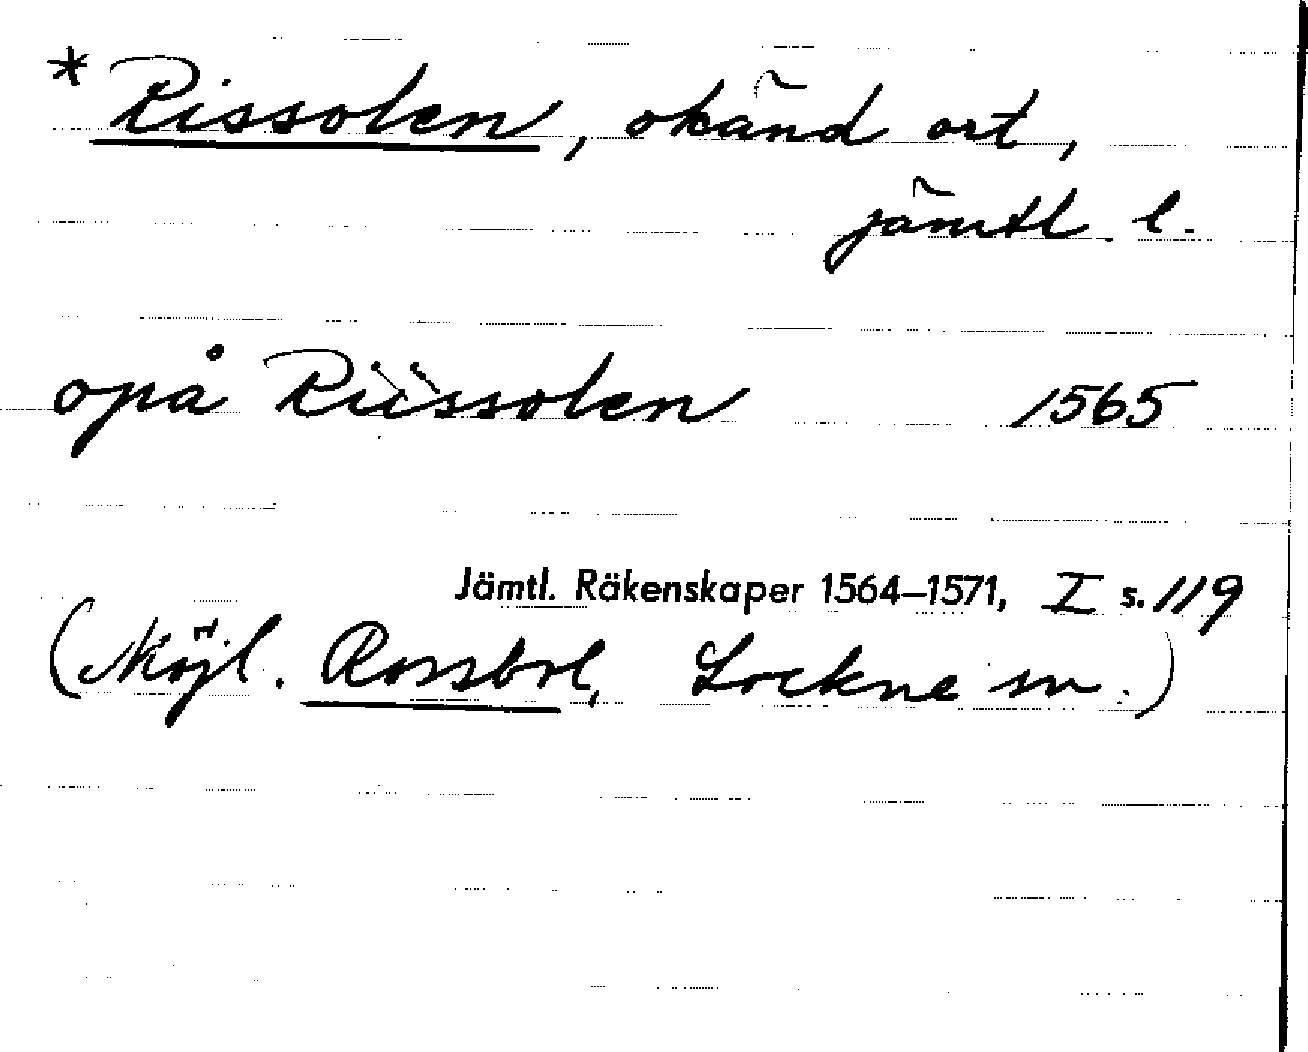 * Rissolen, okänd ort,
jämtl. l.
opå Riissolen 1565
Jämtl. Räkenskaper 1564–1571, I s. 119
(Möjl. Rossbol, Lockne sn.)